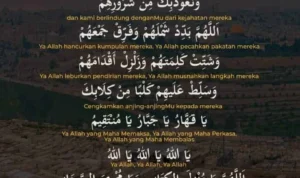 وَنَعُوْذُبِكَ مِنْ شُرُوْرِهِمْ
dan kami berlindung denganMu dari kejahatan mereka
اَللّٰهُمَّ بَدِّدْ شَمْلَهُمْ وَفَرِّقْ جَمْعَهُمْ
Ya Allah hancurkan kumpulan mereka, Ya Allah pecahkan pakatan mereka
وَشَتِّتْ كَلِمَتَهُمْ وَزَلْزِلْ أَقْدَامَهُمْ
Ya Allah leburkan pendirian mereka, Ya Allah musnahkan langkah mereka
وَسَلِّطْ عَلَيْهِمْ كَلْبًا مِنْ كِلَابِكَ
Cengkamkan anjing-anjingMu kepada mereka
يَا قَهَّارُ يَا جَبَّارُ يَا مُنْتَقِيْمُ
Ya Allah yang Maha Memaksa, Ya Allah yang Maha Perkasa,
Ya Allah yang Maha Membalas
يَا اَللهُ يَا اَللهُ يَا اَللهُ
Ya Allah, Ya Allah, Ya Allah